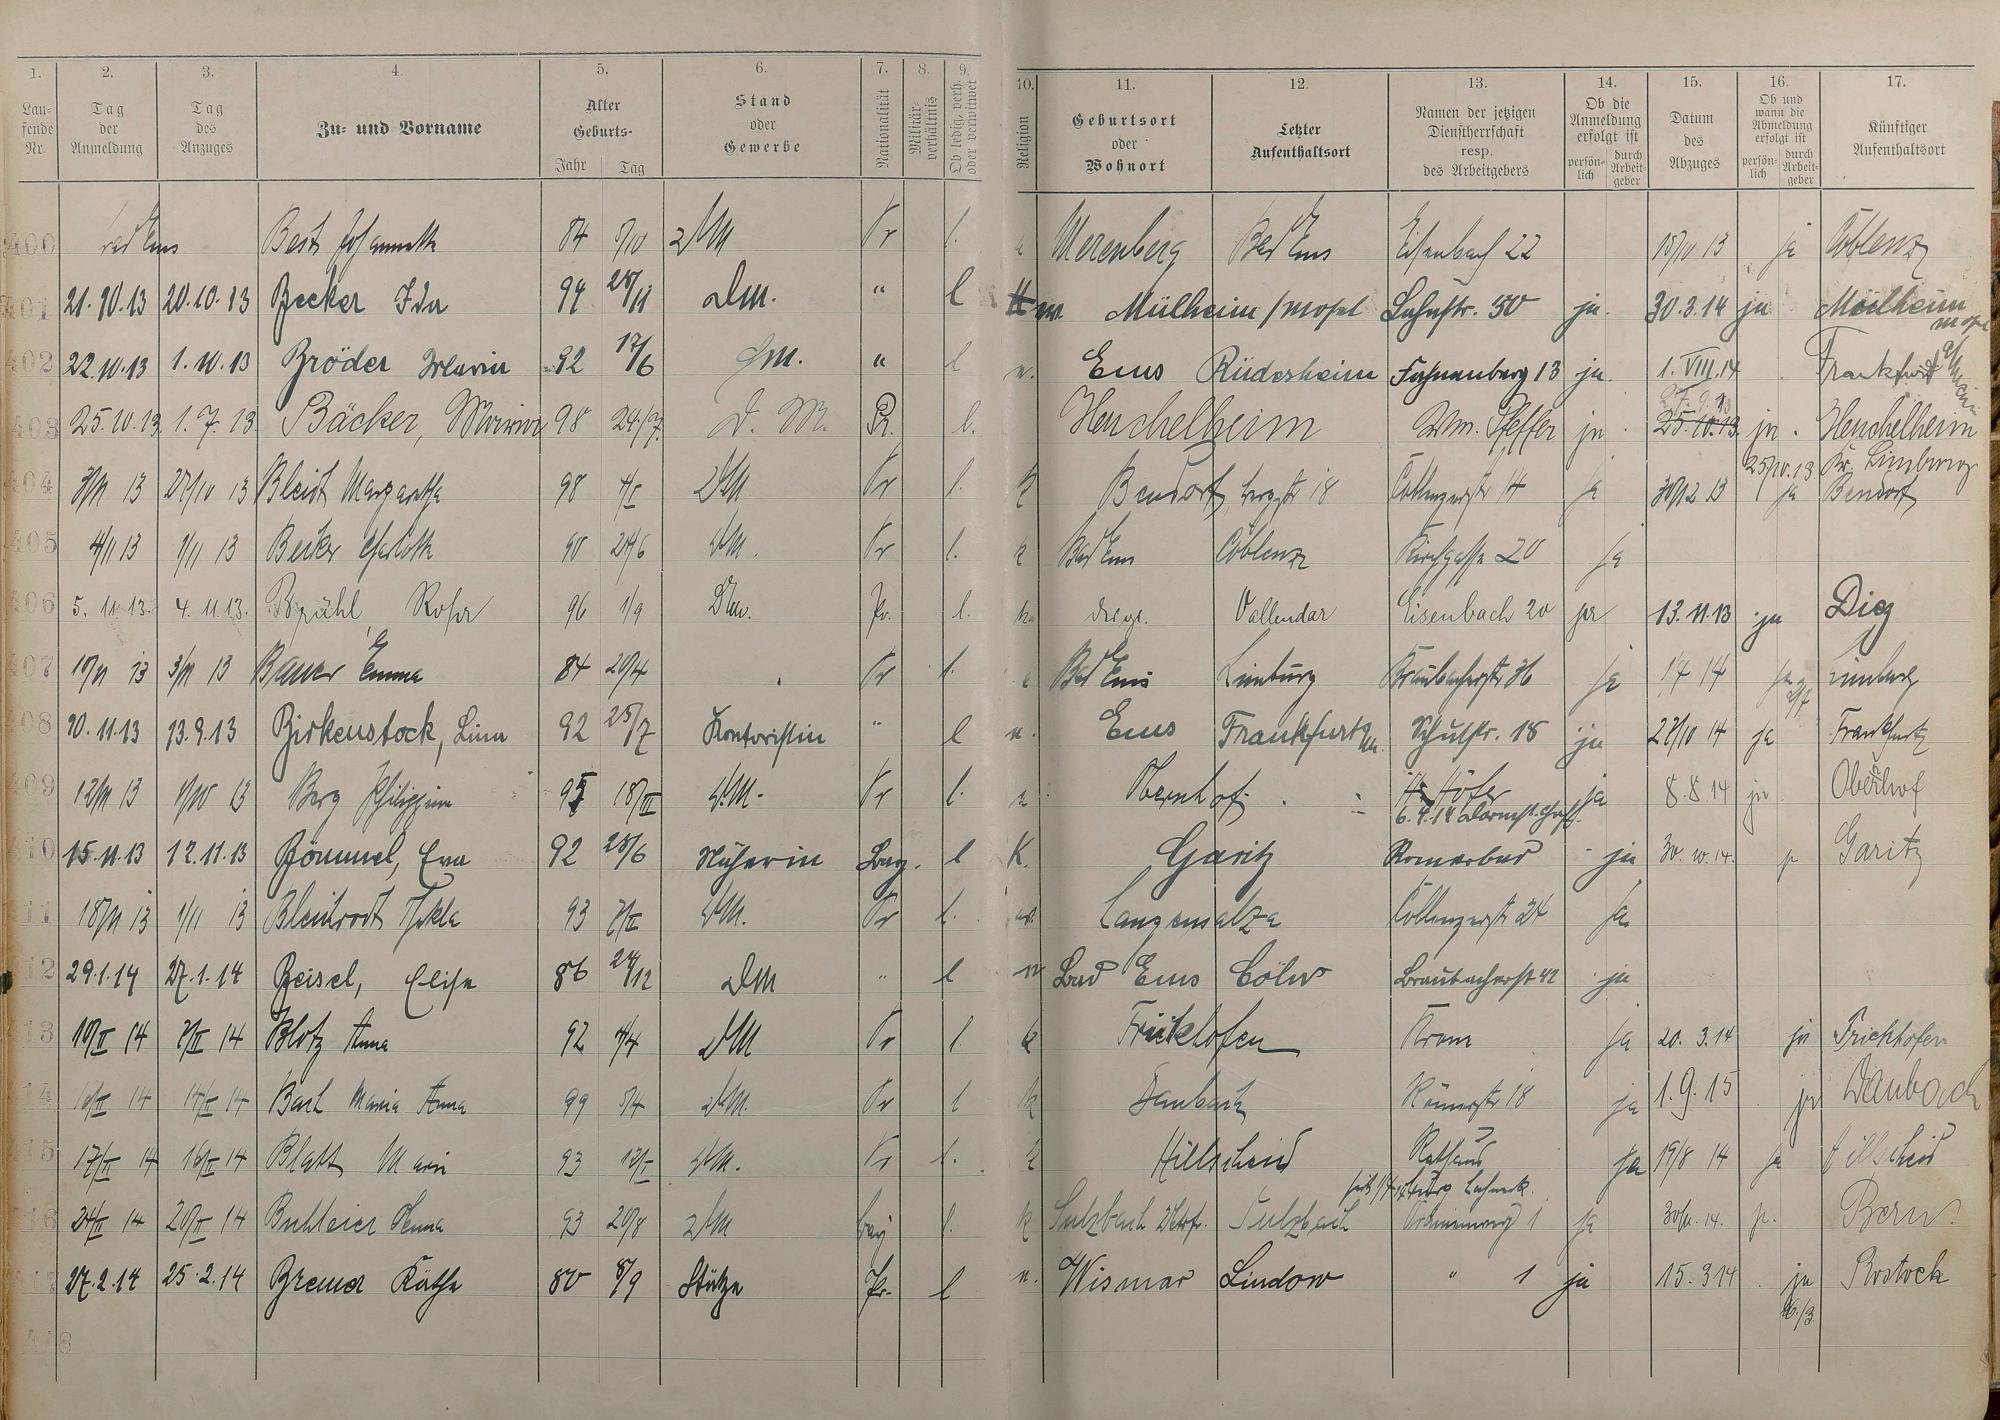 1. 2. 3. 4. 5. 6. 7. 8. 9. 10. 11. 12. 13. 14. 15. 16. 17.
Laufende Nr. Tag der Anmeldung Tag des Anzuges Zu- und Vorname Alter Geburts- Jahr Tag Stand oder Gewerbe Nationalität Militärverhältnis Ob ledig, verh. oder verwitwet Religion Geburtsort oder Wohnort Letzter Aufenthaltsort Namen der jetzigen Dienstherrschaft resp. des Arbeitgebers Ob die Anmeldung erfolgt ist persönlich durch Arbeitgeber Datum des Abzuges Ob und wann die Abmeldung erfolgt ist persönlich durch Arbeitgeber Künftiger Aufenthaltsort
400 Bad Ems Best Johannette 84 DM Pr l. Merenberg Bad Ems Eisenbach 22 13 ja Coblenz
401 21.10.13 20.10.13 Becker Ida 94 28/11 DM. " l ev. Mülheim/Mosel Lahnstr. 50 ja. 30.3.14 ja Mülheim Mosel
402 22.10.13 1.10.13 Bröder Maria 92 17/6 DM. " l Ems Rüdesheim 13 ja. 1.VIII.14 Frankfurt a/Main
403 25.10.13. 1.7.13. Bäcker, 98 24/7. D. M. Pr. l. Heuchelheim Wm. Pfeffer ja 27.9.13 25.10.13. ja. Heuchelheim
25/10.13 Kr. Limburg
404 3/11 13 27/10 13 Bleidt Margaretha 98 4/I DM Pr l. k Bendorf, Bergstr 18 Coblenzerstr 14 ja 30/12 13 ja Bendorf
405 4/11 13 1/11 13 Becker 90 24/6 DM. Pr l. k Bad Ems Coblenz Kirchgasse 20 ja
406 5.11.13. 4.11.13. Brühl, Rosa 96 1/9 DM. Pr. l. k. desgl. Vallendar Eisenbach 20 ja 13.11.13 ja Diez
407 10/11 13 3/11 13 Bauer Emma 84 20/4 Pr l. Bad Ems Limburg Braubacherstr 36 ja 1/4 14 ja Limburg
408 10.11.13 13.9.13 Birkenstock, Lina 92 25/7 Kontoristin " l Ems Frankfurt a/m. Schulstr. 18 ja 27/10 14 ja Frankfurt
409 12/11 13 1/10 13 Berg Philippine 95 18/III DM. Pr l. Obernhof. Höfer ja 8.8.14 ja Oberhof
410 15.11.13 12.11.13 Bömmel, Eva 92 28/6 Näherin Bay. l K. Garitz Römerbad ja 30.10.14. Garitz
411 18/11 13 1/11 13 Bleitrodt Thekla 93 DM. Pr l. ev. Langensalza Coblenzerstr 24 ja
412 29.1.14 27.1.14 Beisel, Elisa 86 24/12 DM " l Bad Ems Cöln Braubacherstr 42 ja
413 10/II 14 14 Blotz Anna 92 4/4 DM Pr l k Frickhofen Krone ja 20.3.14 ja Frickhofen
414 16/II 14 14/II 14 Bach Maria Anna 99 5/4 DM. Pr l k Daubach Römerstr 18 ja 1.9.15 ja Daubach
415 17/II 14 16/II 14 Blatt Marie 93 12/I DM. Pr l. k Hillscheid Rathaus ja 19/8 14 ja Hillscheid
416 24/II 14 20/II 14 Buhleier Anna 93 20/8 DM bay l. k Sulzbach Sulzbach 1 ja 30/11.14. Bern.
417 27.2.14 25.2.14 Bremer Käthe 80 8/9 Stütze Pr. l Wismar Lindow " 1 ja 15.3.14 ja Rostock
16./3.
418